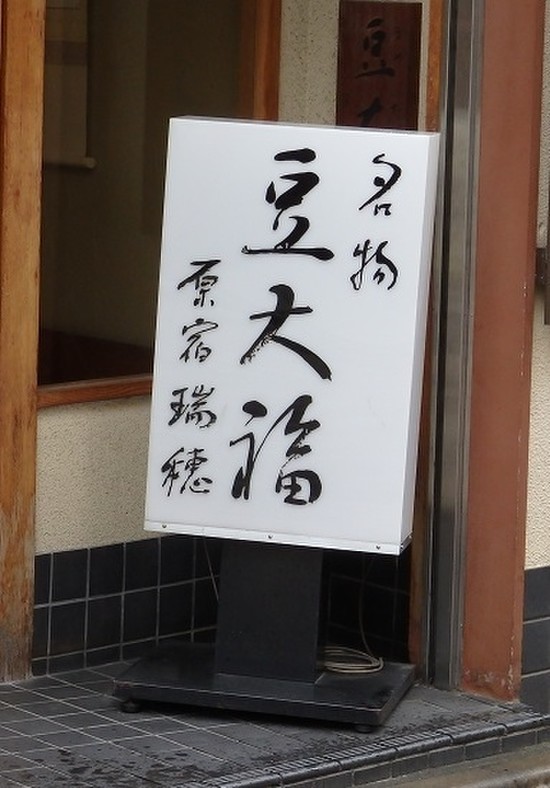 名物
豆大福
原宿瑞穂
豆大